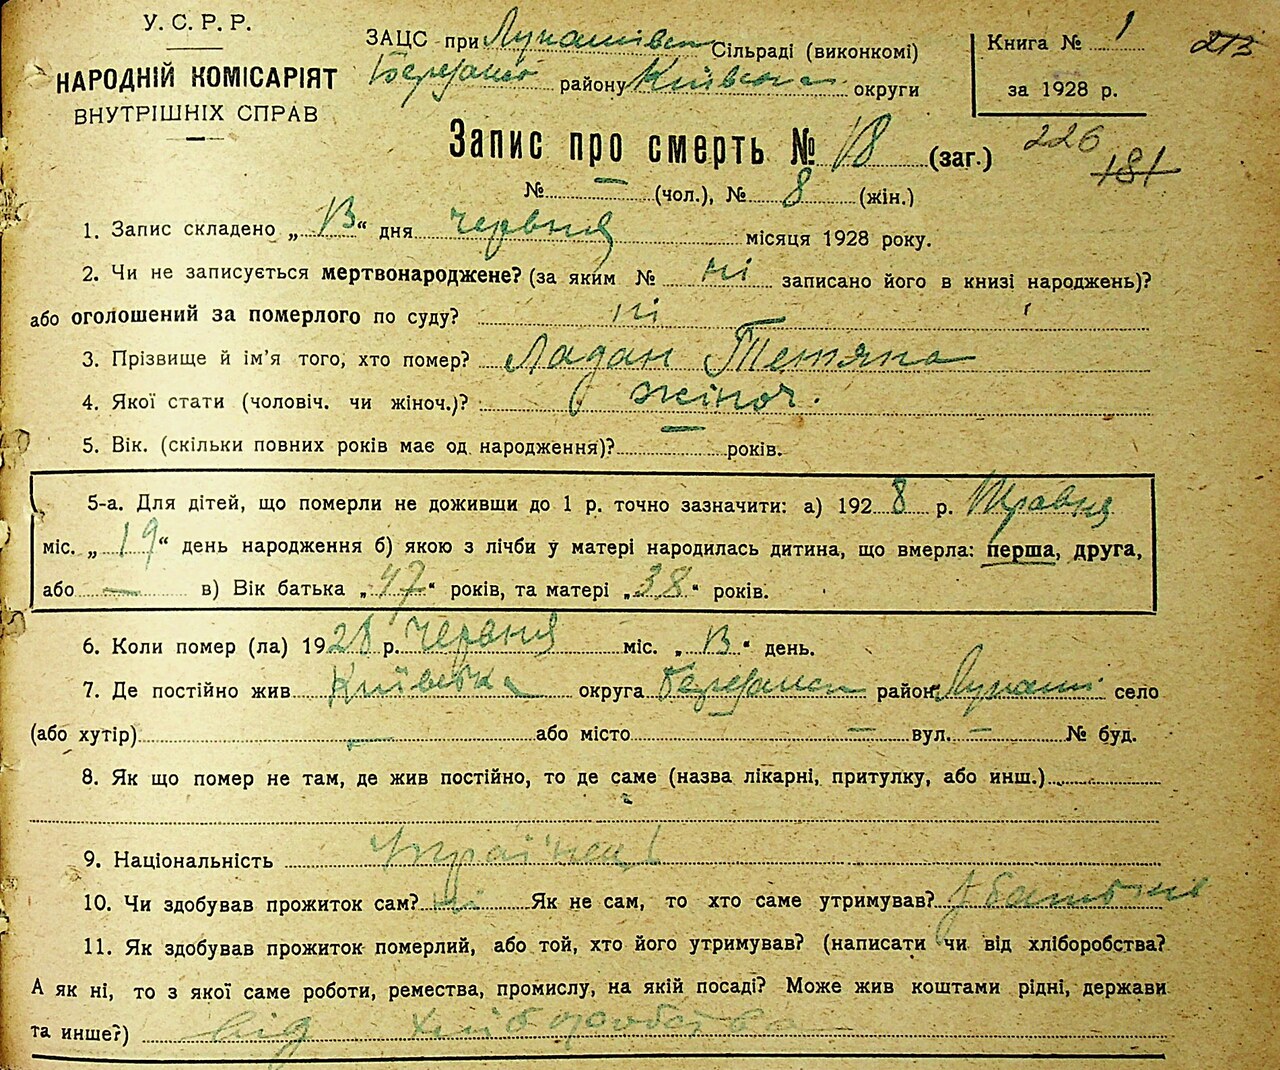 У. С. Р. Р.
НАРОДНІЙ КОМІСАРІЯТ
ВНУТРІШНІХ СПРАВ
ЗАЦС при Лукашівськ Сільраді (виконкомі)
району Київська округи
Книга № 1
за 1928 р.
213
226
181
Запис про смерть № 18 (заг.)
№ — (чол.), № 8 (жін.)
1. Запис складено „13“ дня червня місяця 1928 року.
2. Чи не записується мертвонароджене? (за яким № ні записано його в книзі народжень)?
або оголошений за померлого по суду? ні
3. Прізвище й ім'я того, хто помер? Ладан Тетяна
4. Якої стати (чоловіч. чи жіноч.)? жіноч.
5. Вік. (скільки повних років має од народження)? — років.
5-а. Для дітей, що померли не доживши до 1 р. точно зазначити: а) 1928 р. Травня
міс. „19“ день народження б) якою з лічби у матері народилась дитина, що вмерла: перша, друга,
або — в) Вік батька „47“ років, та матері „38“ років.
6. Коли помер (ла) 1928 р. червня міс. „13“ день.
7. Де постійно жив Київська округа район Лукаші село
(або хутір) — або місто — вул. — № буд.
8. Як що помер не там, де жив постійно, то де саме (назва лікарні, притулку, або инш.)
9. Національність
10. Чи здобував прожиток сам? ні Як не сам, то хто саме утримував? батьків
11. Як здобував прожиток померлий, або той, хто його утримував? (написати чи від хліборобства?
А як ні, то з якої саме роботи, ремества, промислу, на якій посаді? Може жив коштами рідні, держави
та инше?) від хліборобства